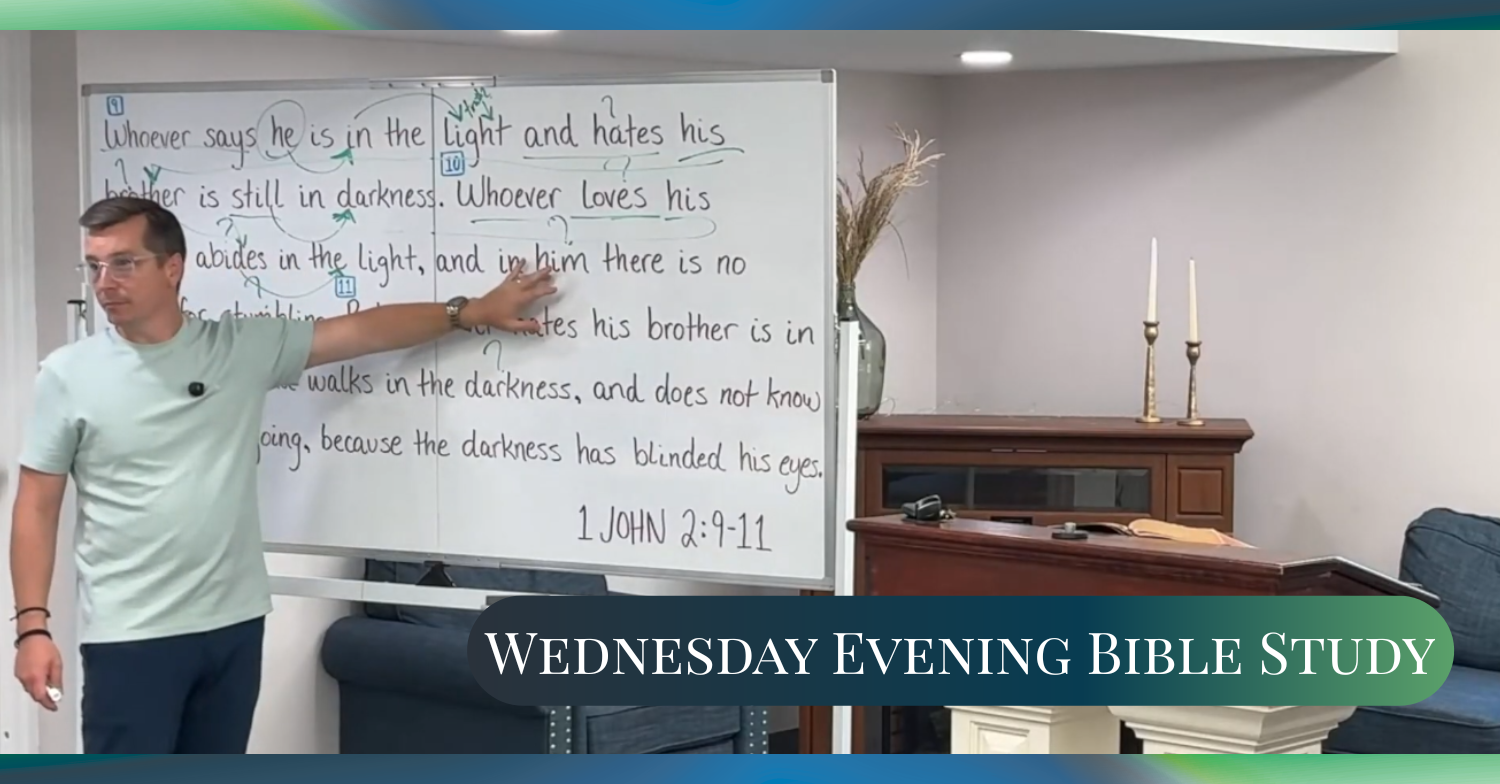 9
truth
Whoever says he is in the light and hates his
10
brother is still in darkness. Whoever loves his
abides in the light, and in him there is no
11
for stumbling. hates his brother is in
walks in the darkness, and does not know
going, because the darkness has blinded his eyes.
1 JOHN 2:9-11
WEDNESDAY EVENING BIBLE STUDY